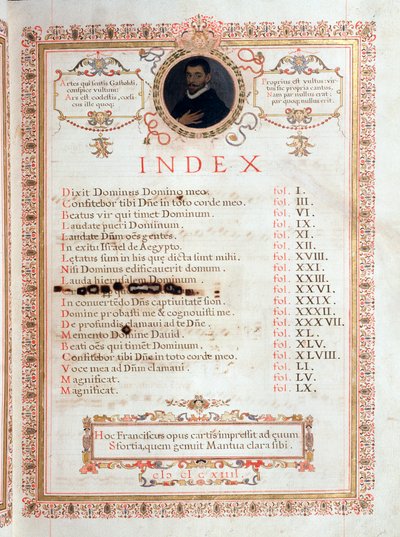 Artes qui sentis Gastoldi,
conspice vultum:
Ars est coelestis, coeli-
cus ille quoq;
Proprius est vultus: vir-
tus sic propria cantus,
Nam par nullus erat:
par quoq; nullus erit.
INDEX
Dixit Dominus Domino meo. fol. I.
Confitebor tibi Dñe in toto corde meo. fol. III.
Beatus vir qui timet Dominum. fol. VI.
Laudate pueri Dominum. fol. IX.
Laudate Dũm oẽs gentes. fol. XI.
In exitu Israel de Aegypto. fol. XII.
Lętatus sum in his quę dicta sunt mihi. fol. XVIII.
Nisi Dominus edificauerit domum. fol. XXI.
Lauda hierusalem Dominum. fol. XXIII.
fol. XXVI.
In conuertẽdo Dñs captiuitatẽ sion. fol. XXIX.
Domine probasti me & cognouisti me. fol. XXXII.
De profundis clamaui ad te Dñe. fol. XXXVII.
Memento Domine Dauid. fol. XL.
Beati oẽs qui timent Dominum. fol. XLV.
Confitebor tibi Dñe in toto corde meo. fol. XLVIII.
Voce mea ad Dũm clamaui. fol. LI.
Magnificat. fol. LV.
Magnificat. fol. LX.
Hoc Franciscus opus cartis impressit ad euum
Sfortia, quem genuit Mantua clara sibi.